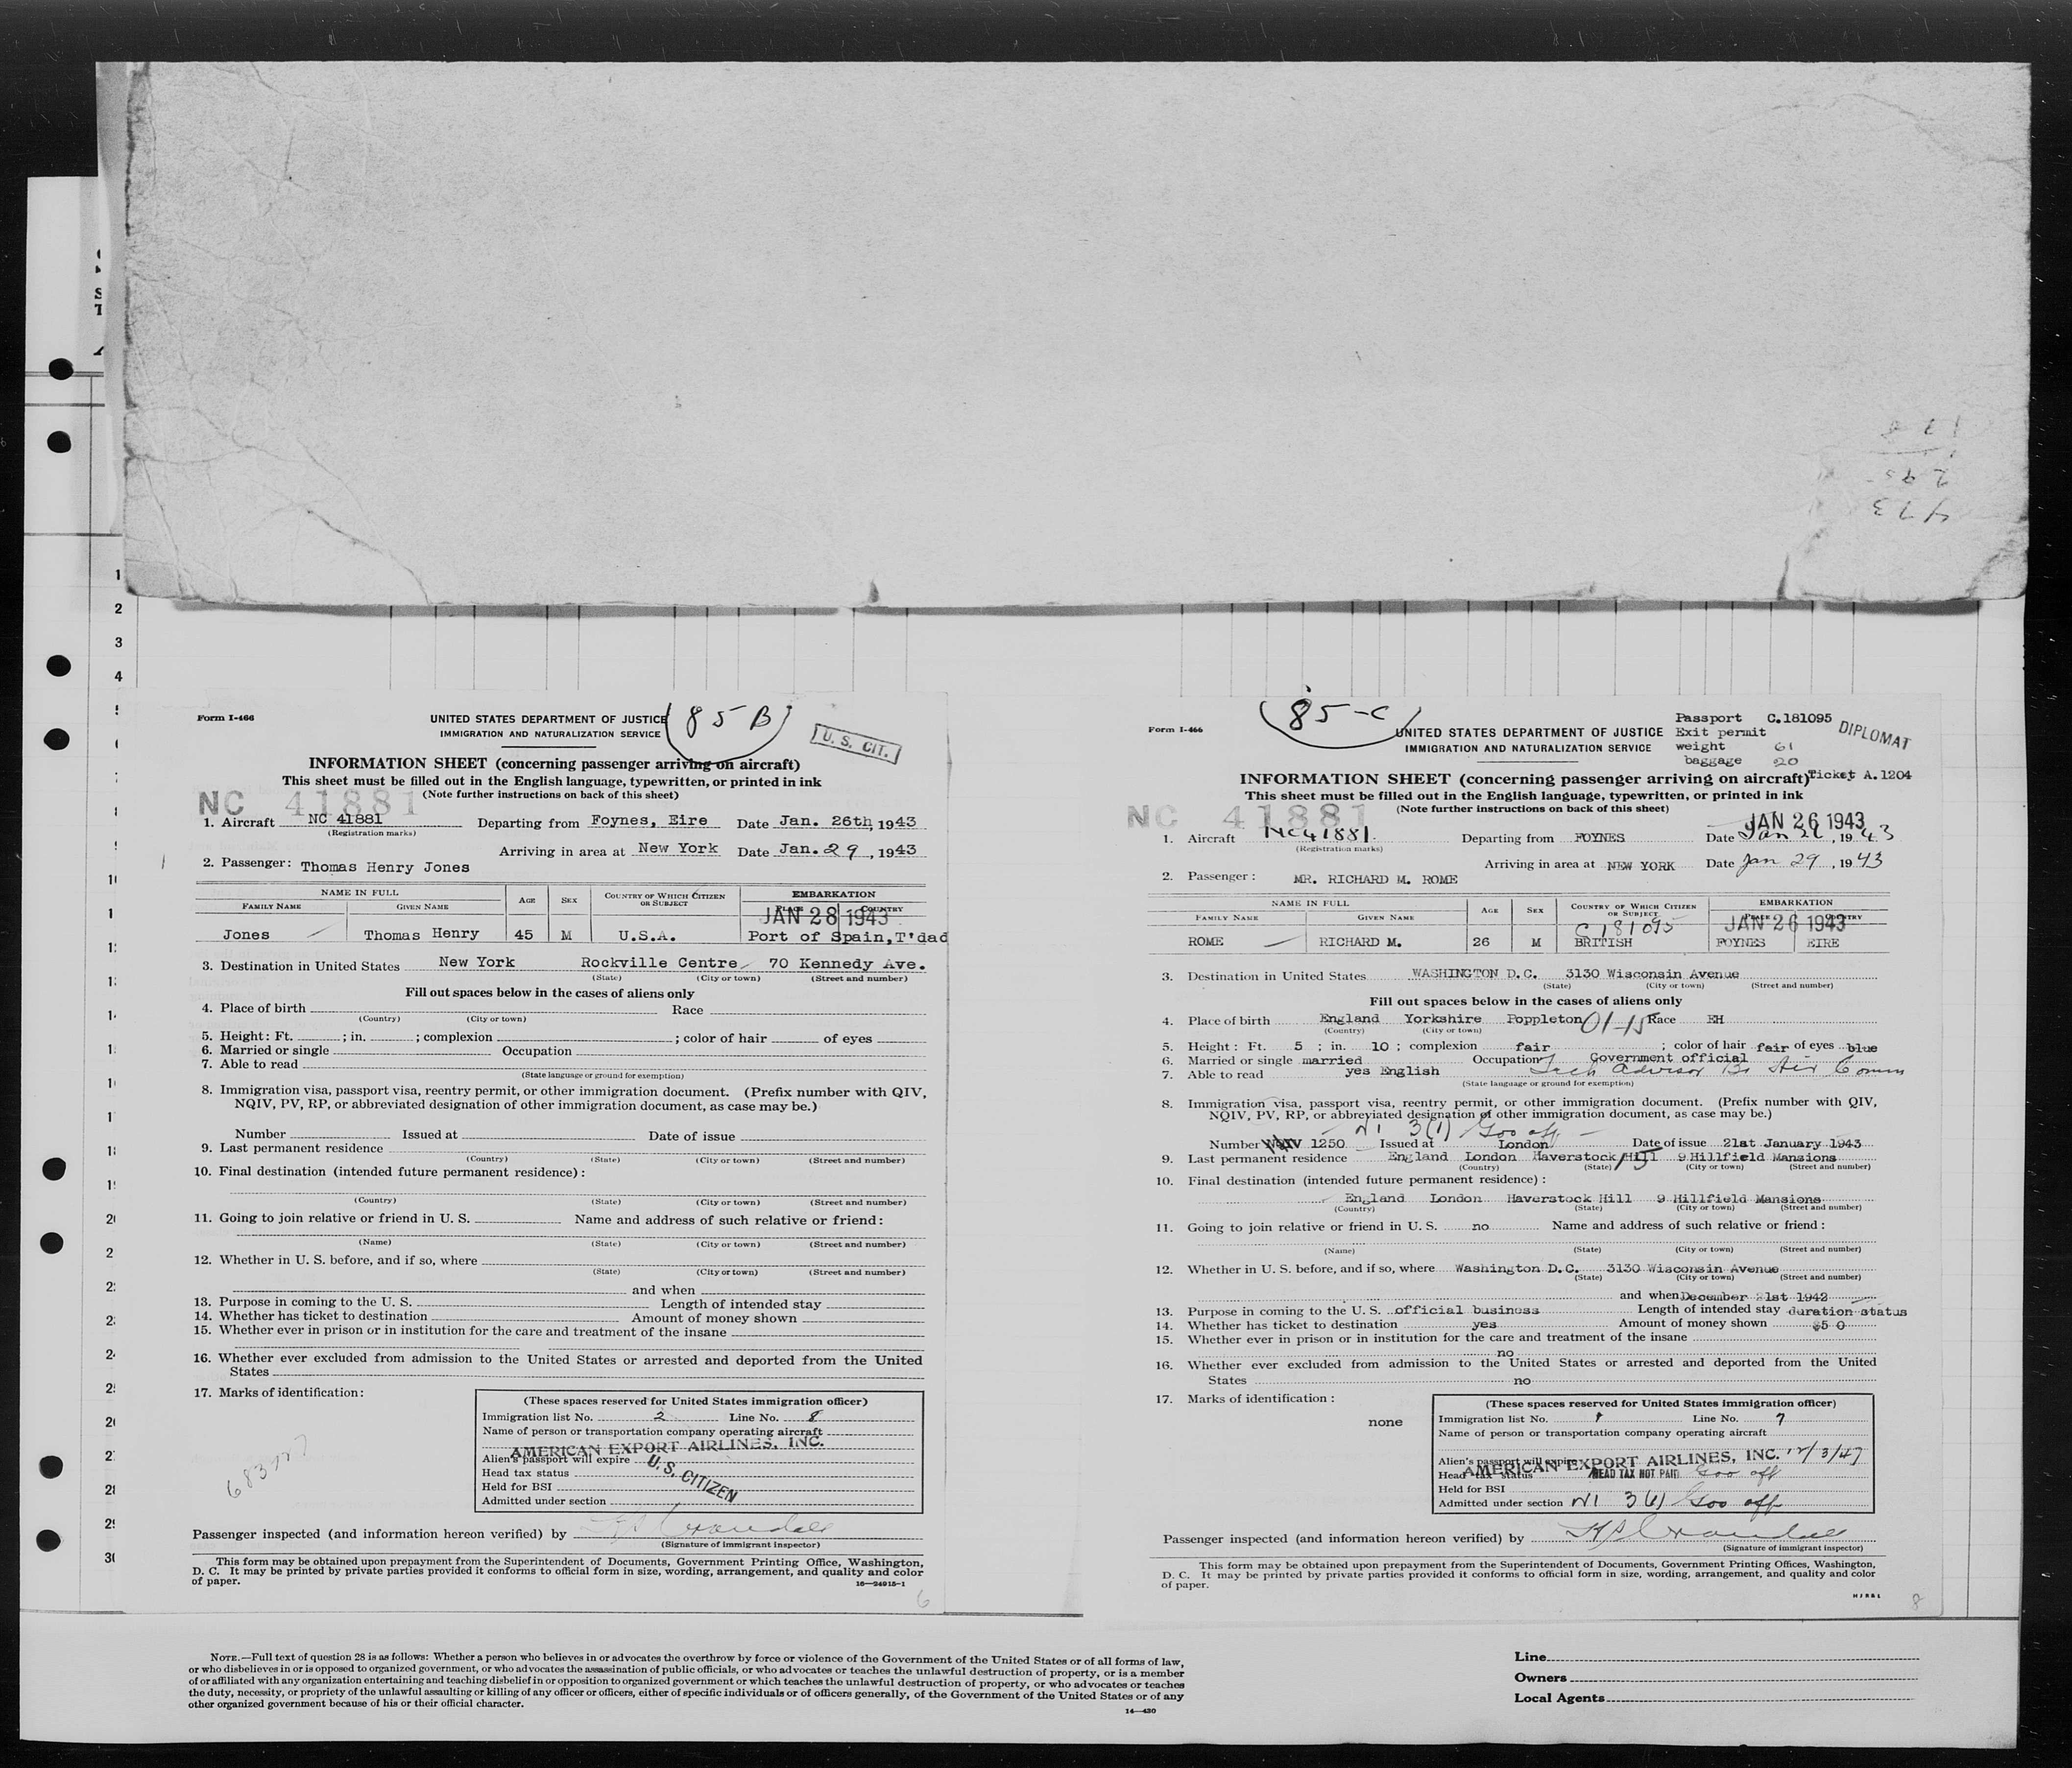 1
2
3
4
Form I-466
85 B
UNITED STATES DEPARTMENT OF JUSTICE
IMMIGRATION AND NATURALIZATION SERVICE
U. S. CIT.
INFORMATION SHEET (concerning passenger arriving on aircraft)
This sheet must be filled out in the English language, typewritten, or printed in ink
(Note further instructions on back of this sheet)
NC 41881
1. Aircraft NC 41881 Departing from Foynes, Eire Date Jan. 26th, 1943
(Registration marks)
Arriving in area at New York Date Jan. 29, 1943
2. Passenger: Thomas Henry Jones
NAME IN FULL AGE SEX COUNTRY OF WHICH CITIZEN OR SUBJECT EMBARKATION
FAMILY NAME GIVEN NAME PLACE COUNTRY
JAN 28 1943
Jones Thomas Henry 45 M U.S.A. Port of Spain, T'dad
3. Destination in United States New York Rockville Centre 70 Kennedy Ave.
(State) (City or town) (Street and number)
Fill out spaces below in the cases of aliens only
4. Place of birth Race
(Country) (City or town)
5. Height: Ft. ; in. ; complexion ; color of hair of eyes
6. Married or single Occupation
7. Able to read
(State language or ground for exemption)
8. Immigration visa, passport visa, reentry permit, or other immigration document. (Prefix number with QIV,
NQIV, PV, RP, or abbreviated designation of other immigration document, as case may be.)
Number Issued at Date of issue
9. Last permanent residence
(Country) (State) (City or town) (Street and number)
10. Final destination (intended future permanent residence):
(Country) (State) (City or town) (Street and number)
11. Going to join relative or friend in U. S. Name and address of such relative or friend:
(Name) (State) (City or town) (Street and number)
12. Whether in U. S. before, and if so, where
(State) (City or town) (Street and number)
and when
13. Purpose in coming to the U. S. Length of intended stay
14. Whether has ticket to destination Amount of money shown
15. Whether ever in prison or in institution for the care and treatment of the insane
16. Whether ever excluded from admission to the United States or arrested and deported from the United
States
17. Marks of identification:
(These spaces reserved for United States immigration officer)
Immigration list No. 2 Line No. 8
Name of person or transportation company operating aircraft
AMERICAN EXPORT AIRLINES, INC.
Alien's passport will expire
U. S. CITIZEN
Head tax status
Held for BSI
Admitted under section
Passenger inspected (and information hereon verified) by
(Signature of immigrant inspector)
This form may be obtained upon prepayment from the Superintendent of Documents, Government Printing Office, Washington,
D. C. It may be printed by private parties provided it conforms to official form in size, wording, arrangement, and quality and color
of paper.
16—24915-1
6
Form I-466
85-C
UNITED STATES DEPARTMENT OF JUSTICE
IMMIGRATION AND NATURALIZATION SERVICE
Passport C.181095
Exit permit
weight 61
baggage 20
Ticket A.1204
DIPLOMAT
INFORMATION SHEET (concerning passenger arriving on aircraft)
This sheet must be filled out in the English language, typewritten, or printed in ink
(Note further instructions on back of this sheet)
NC 41881
JAN 26 1943
1. Aircraft NC41881. Departing from FOYNES Date Jan 26, 1943
(Registration marks)
Arriving in area at NEW YORK Date Jan 29, 1943
2. Passenger: MR. RICHARD M. ROME
NAME IN FULL AGE SEX COUNTRY OF WHICH CITIZEN OR SUBJECT EMBARKATION
FAMILY NAME GIVEN NAME PLACE COUNTRY
C 181095 JAN 26 1943
ROME RICHARD M. 26 M BRITISH FOYNES EIRE
3. Destination in United States WASHINGTON D.C. 3130 Wisconsin Avenue
(State) (City or town) (Street and number)
Fill out spaces below in the cases of aliens only
4. Place of birth England Yorkshire Poppleton 01-15 Race EH
(Country) (City or town)
5. Height: Ft. 5 ; in. 10 ; complexion fair ; color of hair fair of eyes blue
6. Married or single married Occupation Government official
Tech advisor Br Air Comm
7. Able to read yes English
(State language or ground for exemption)
8. Immigration visa, passport visa, reentry permit, or other immigration document. (Prefix number with QIV,
NQIV, PV, RP, or abbreviated designation of other immigration document, as case may be.)
3(1) Gov off
Number 1250 Issued at London Date of issue 21st January 1943
9. Last permanent residence England London Haverstock Hill 9 Hillfield Mansions
(Country) (State) (City or town) (Street and number)
10. Final destination (intended future permanent residence):
England London Haverstock Hill 9 Hillfield Mansions
(Country) (State) (City or town) (Street and number)
11. Going to join relative or friend in U. S. no Name and address of such relative or friend:
(Name) (State) (City or town) (Street and number)
12. Whether in U. S. before, and if so, where Washington D.C. 3130 Wisconsin Avenue
(State) (City or town) (Street and number)
and when December 21st 1942
13. Purpose in coming to the U. S. official business Length of intended stay duration status
14. Whether has ticket to destination yes Amount of money shown $50
15. Whether ever in prison or in institution for the care and treatment of the insane
no
16. Whether ever excluded from admission to the United States or arrested and deported from the United
States no
17. Marks of identification:
none
(These spaces reserved for United States immigration officer)
Immigration list No. 1 Line No. 7
Name of person or transportation company operating aircraft
Alien's passport will expire 12/3/47
AMERICAN EXPORT AIRLINES, INC.
Head tax status HEAD TAX NOT PAID Gov off
Held for BSI
Admitted under section 3(1) Gov off
Passenger inspected (and information hereon verified) by
(Signature of immigrant inspector)
This form may be obtained upon prepayment from the Superintendent of Documents, Government Printing Offices, Washington,
D. C. It may be printed by private parties provided it conforms to official form in size, wording, arrangement, and quality and color
of paper.
8
NOTE.—Full text of question 28 is as follows: Whether a person who believes in or advocates the overthrow by force or violence of the Government of the United States or of all forms of law,
or who disbelieves in or is opposed to organized government, or who advocates the assassination of public officials, or who advocates or teaches the unlawful destruction of property, or is a member
of or affiliated with any organization entertaining and teaching disbelief in or opposition to organized government or which teaches the unlawful destruction of property, or who advocates or teaches
the duty, necessity, or propriety of the unlawful assaulting or killing of any officer or officers, either of specific individuals or of officers generally, of the Government of the United States or of any
other organized government because of his or their official character.
14—430
Line
Owners
Local Agents